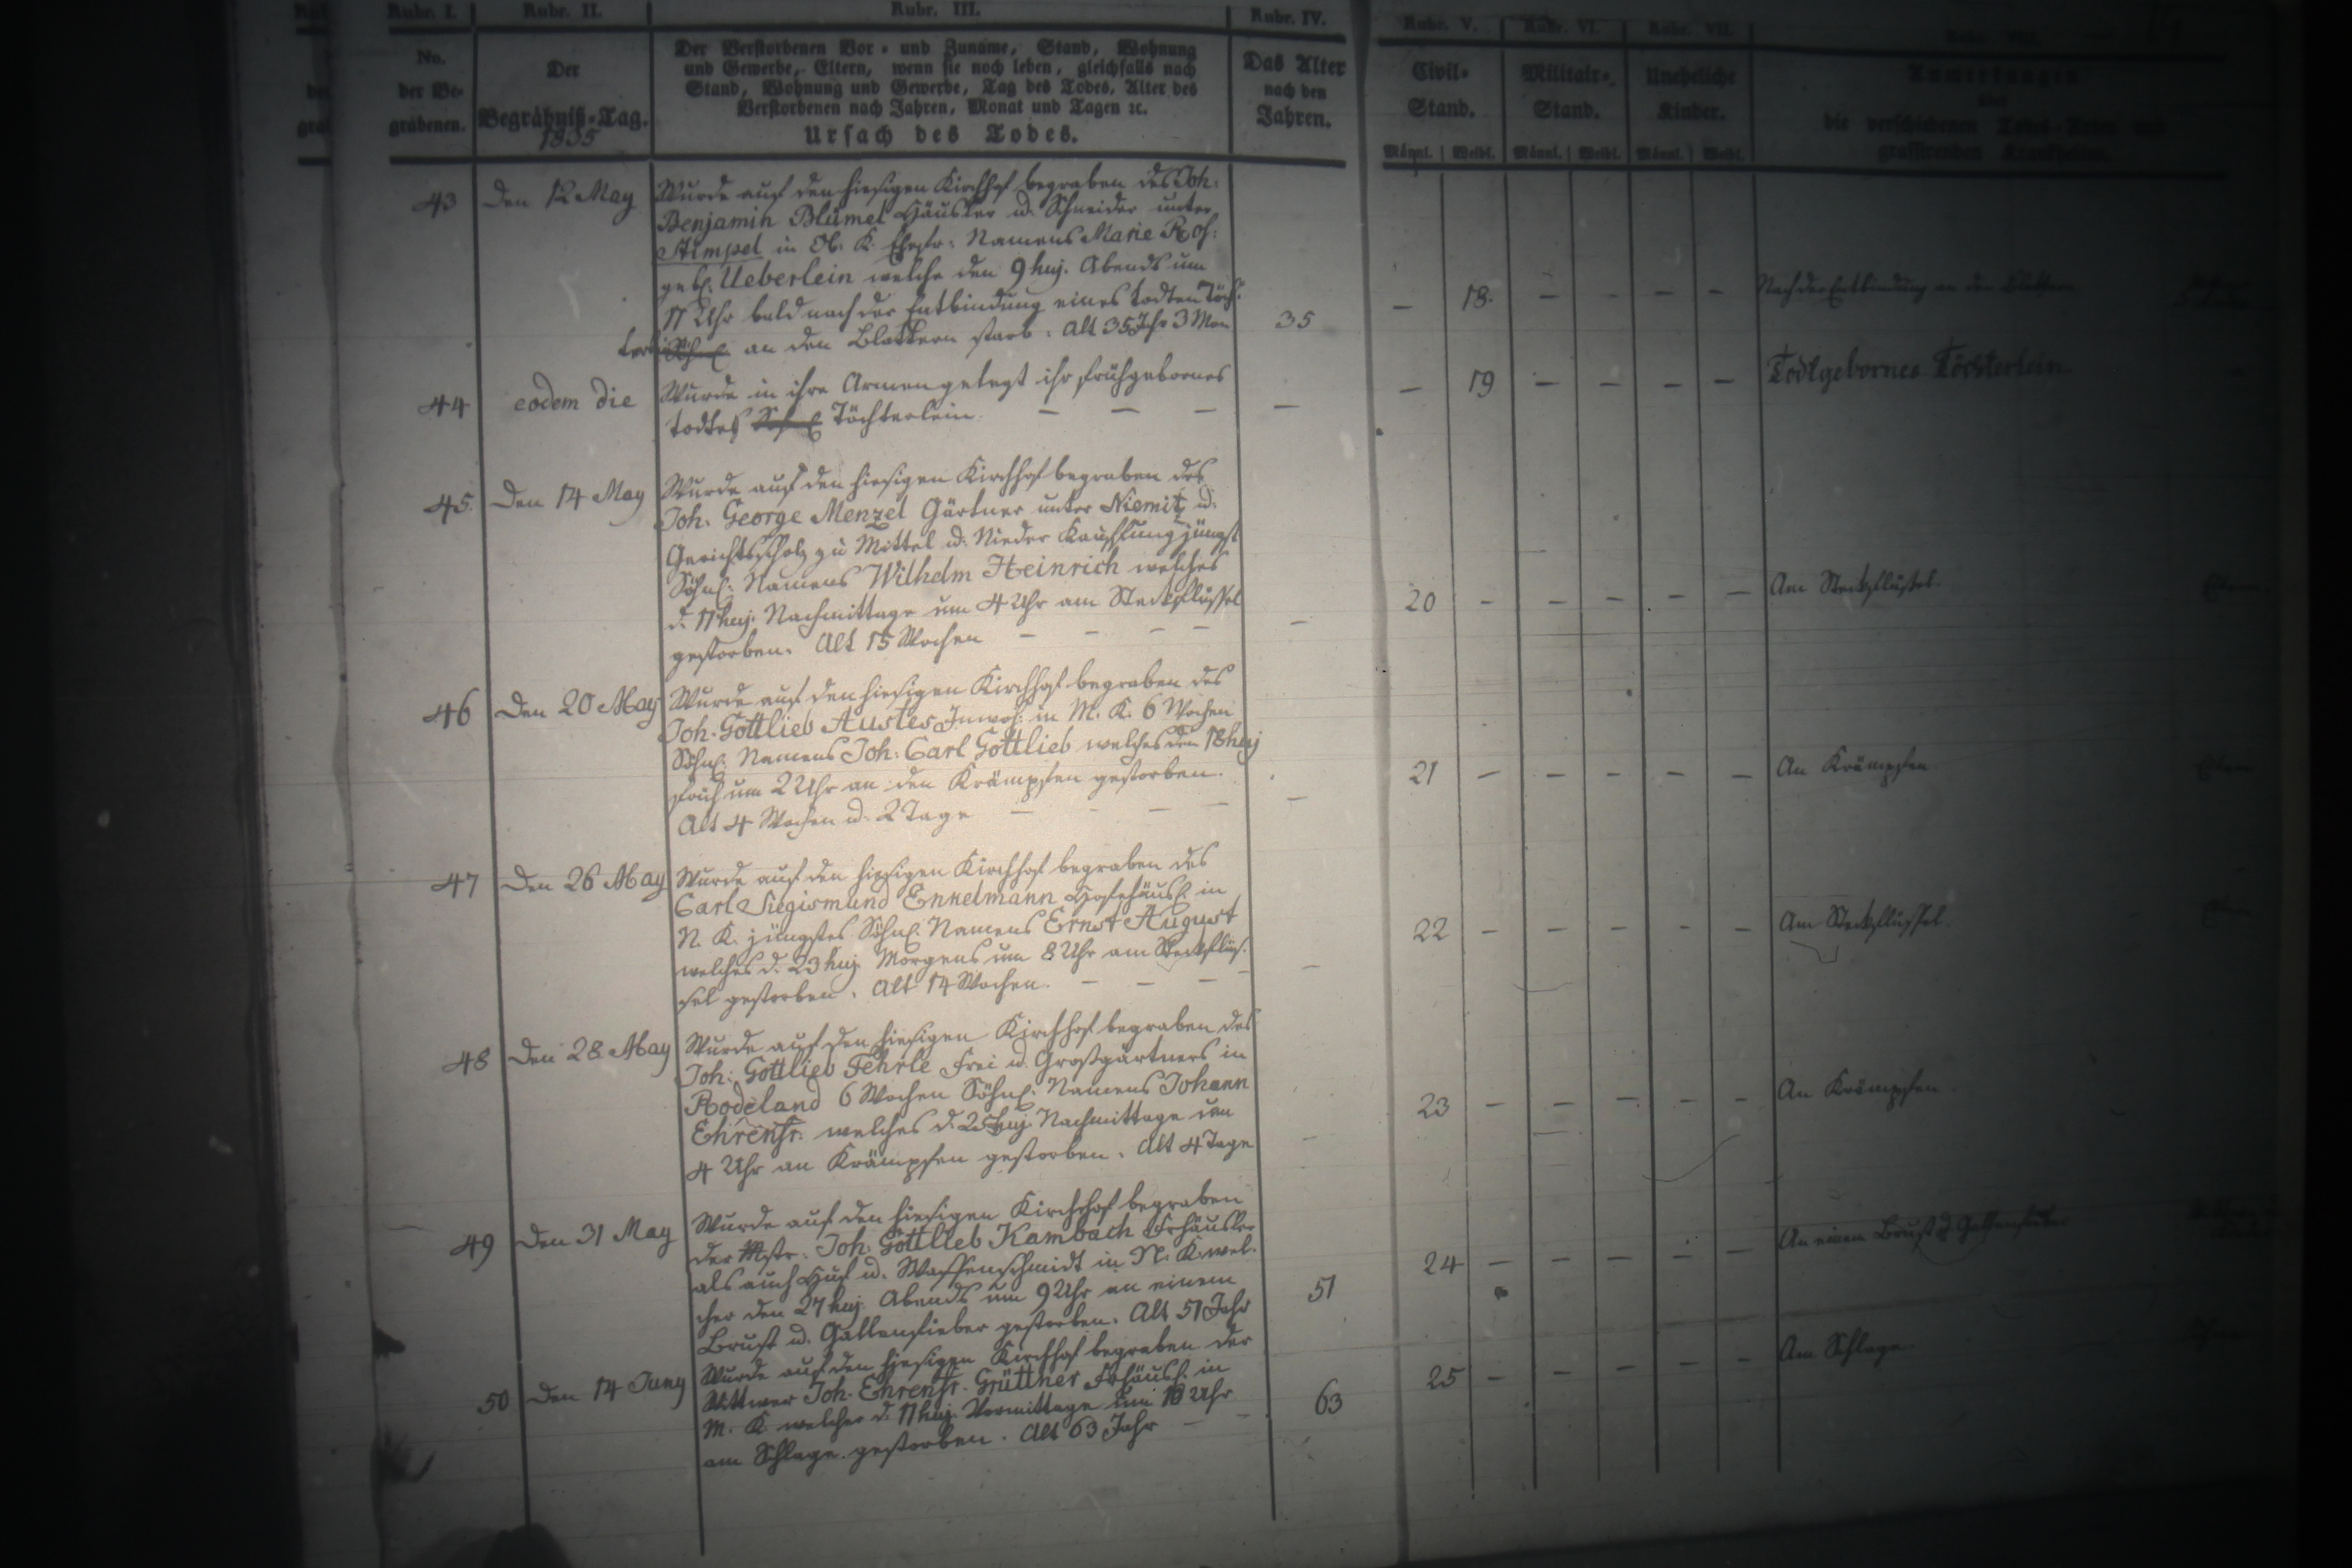 Rubr. I. Rubr. II. Rubr. III. Rubr. IV. Rubr. V. Rubr. VI. Rubr. VII.
No. der Begrabenen.
Der Begräbniß-Tag.
1835
Der Verstorbenen Vor- und Zuname, Stand, Wohnung
und Gewerbe, Eltern, wenn sie noch leben, gleichfalls nach
Stand, Wohnung und Gewerbe, Tag des Todes, Alter des
Verstorbenen nach Jahren, Monat und Tagen ꝛc.
Ursach des Todes.
Das Alter
nach den
Jahren.
Civil-
Stand.
Militair-
Stand.
Uneheliche
Kinder.
Anmerkungen
die verschiedenen
grassirenden Krankheiten.
Männl. Weibl. Männl. Weibl. Männl. Weibl.
43 Den 12 May Wurde auf den hiesigen Kirchhof begraben des Joh:
Benjamin Blümel Häusler u. Schneider unter
Stimpel in Ob. K. Ehefr: Namens Marie Ros:
geb. Ueberlein welche den 9 huj. Abends um
11 Uhr bald nach der Entbindung eines todten Töch-
terl. an den Blattern starb. Alt 35 Jhr 3 Mon 35 — 18. — — — — Nach der Entbindung an den Blattern
44 eodem die Wurde in ihre Armen gelegt ihr frühgebornes
todtes Töchterlein — — — — — 19 — — — — Todtgebornes Töchterlein.
45. Den 14 May Wurde auf den hiesigen Kirchhof begraben des
Joh. George Menzel Gärtner unter Niemitz u.
Gerichtsscholz zu Mittel u. Nieder Kauffung jüngst
Söhnl. Namens Wilhelm Heinrich welches
d. 11 huj. Nachmittage um 4 Uhr am Steckflussel
gestorben. Alt 15 Wochen — — — — — 20 — — — — — Am Steckflussel.
46 Den 20 May Wurde auf den hiesigen Kirchhof begraben des
Joh. Gottlieb Austes Inwoh: in M. K. 6 Wochen
Söhnl. Namens Joh: Carl Gottlieb welches den 18 huj
früh um 2 Uhr an den Krämpfen gestorben.
Alt 4 Wochen u. 2 Tage — — — — — 21 — — — — — An Krämpfen
47 Den 26 May Wurde auf den hiesigen Kirchhof begraben des
Carl Siegismund Enkelmann Hofehäusl. in
N. K. jüngstes Söhnl. Namens Ernst August
welches d. 23 huj. Morgens um 8 Uhr am Steckflus-
sel gestorben. Alt 14 Wochen. — — — — 22 — — — — — Am Steckflussel.
48 Den 28 May Wurde auf den hiesigen Kirchhof begraben des
Joh: Gottlieb Fehrle Frei u. Großgärtners in
Rodeland 6 Wochen Söhnl. Namens Johann
Ehrenfr. welches d. 25 huj. Nachmittage um
4 Uhr an Krämpfen gestorben. Alt 4 Tage — 23 — — — — — An Krämpfen.
49 Den 31 May Wurde auf den hiesigen Kirchhof begraben
der Mstr. Joh: Gottlieb Kambach Frhäusler
als auch Huf u. Waffenschmidt in N. K. wel-
cher den 27 huj. Abends um 9 Uhr an einem
Brust u. Gallenfieber gestorben. Alt 51 Jahr 51 24 — — — — — An einem Brust u. Gallenfieber
50 Den 14 Juny Wurde auf den hiesigen Kirchhof begraben der
Wittwer Joh. Ehrenfr. Grüttner Frhäusl. in
M. K. welcher d. 11 huj. Vormittage um 10 Uhr
am Schlage gestorben. Alt 63 Jahr — — 63 25 — — — — — Am Schlage.